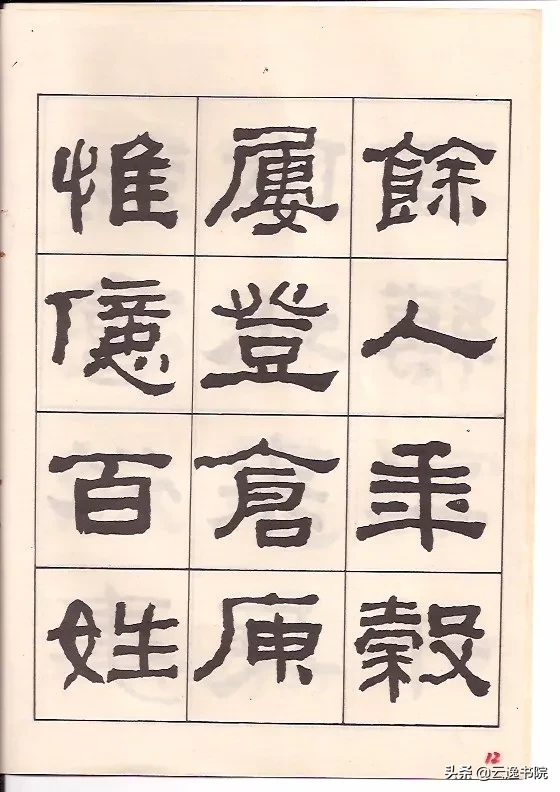 餘人年穀
屢登倉庾
惟億百姓
12
头条 @云逸书院